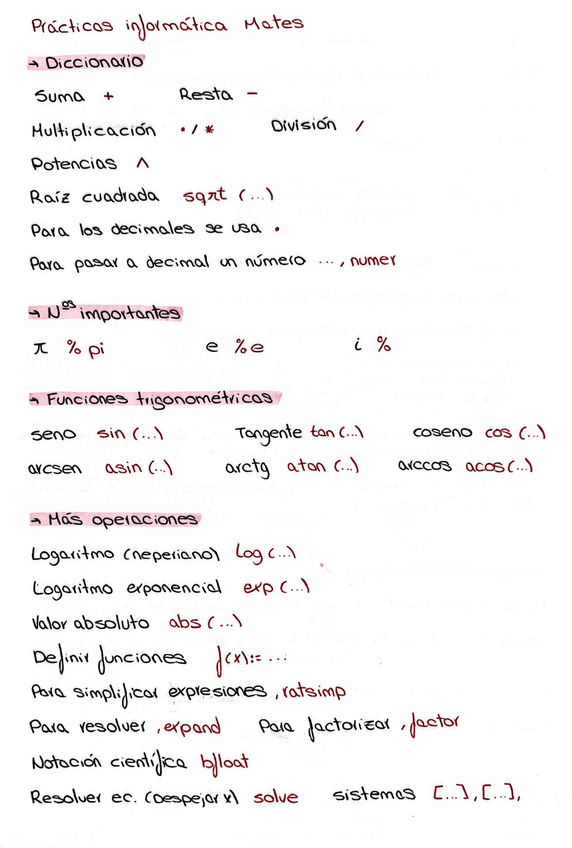 Prácticas informática Mates
→ Diccionario
Suma + Resta -
Multiplicación · / * División /
Potencias ^
Raíz cuadrada sqrt (...)
Para los decimales se usa .
Para pasar a decimal un número ..., numer
→ Nºs importantes
π %pi e %e i %
→ Funciones trigonométricas
seno sin (...) Tangente tan (...) coseno cos (...)
arcsen asin (...) arctg atan (...) arccos acos (...)
→ Más operaciones
Logaritmo (neperiano) log (...)
Logaritmo exponencial exp (...)
Valor absoluto abs (...)
Definir funciones f(x):= ...
Para simplificar expresiones , ratsimp
Para resolver , expand Para factorizar , factor
Notación científica bfloat
Resolver ec. (Despejar x) solve sistemas [...], [...],